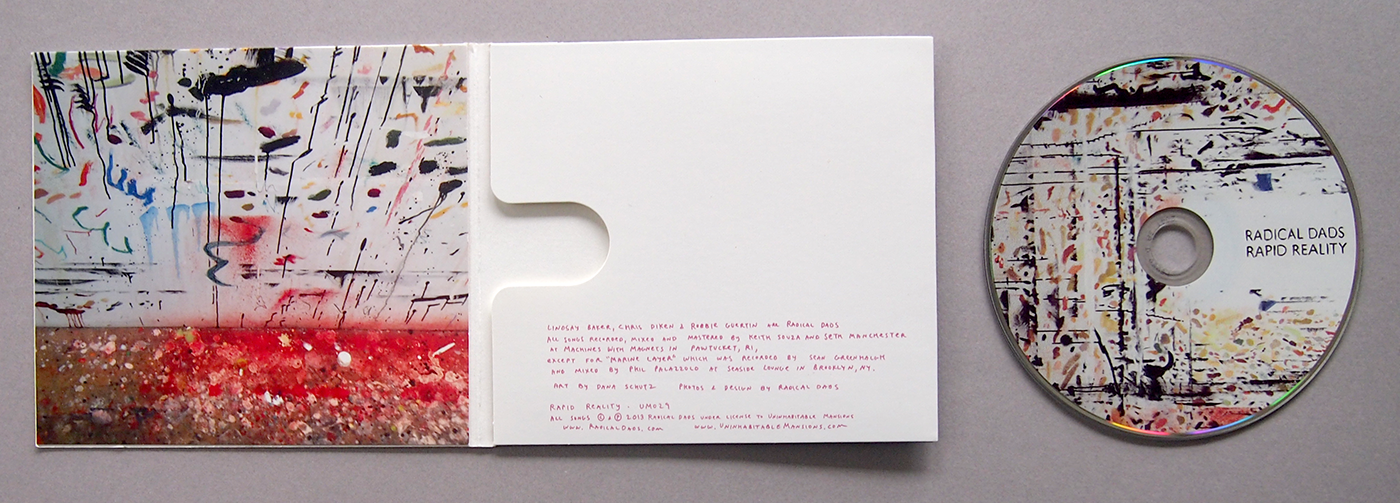 LINDSAY BAKER, CHRIS DIKEN & ROBBIE GUERTIN ARE RADICAL DADS
ALL SONGS RECORDED, MIXED AND MASTERED BY KEITH SOUZA AND SETH MANCHESTER
AT MACHINES WITH MAGNETS IN PAWTUCKET, RI,
EXCEPT FOR "MARINE LAYER" WHICH WAS RECORDED BY SEAN GREENHALGH
AND MIXED BY PHIL PALAZZOLO AT SEASIDE LOUNGE IN BROOKLYN, NY.
ART BY DANA SCHUTZ PHOTOS & DESIGN BY RADICAL DADS
RAPID REALITY - UM029
ALL SONGS © & ℗ 2013 RADICAL DADS UNDER LICENSE TO UNINHABITABLE MANSIONS
WWW.RADICALDADS.COM WWW.UNINHABITABLEMANSIONS.COM
RADICAL DADS
RAPID REALITY